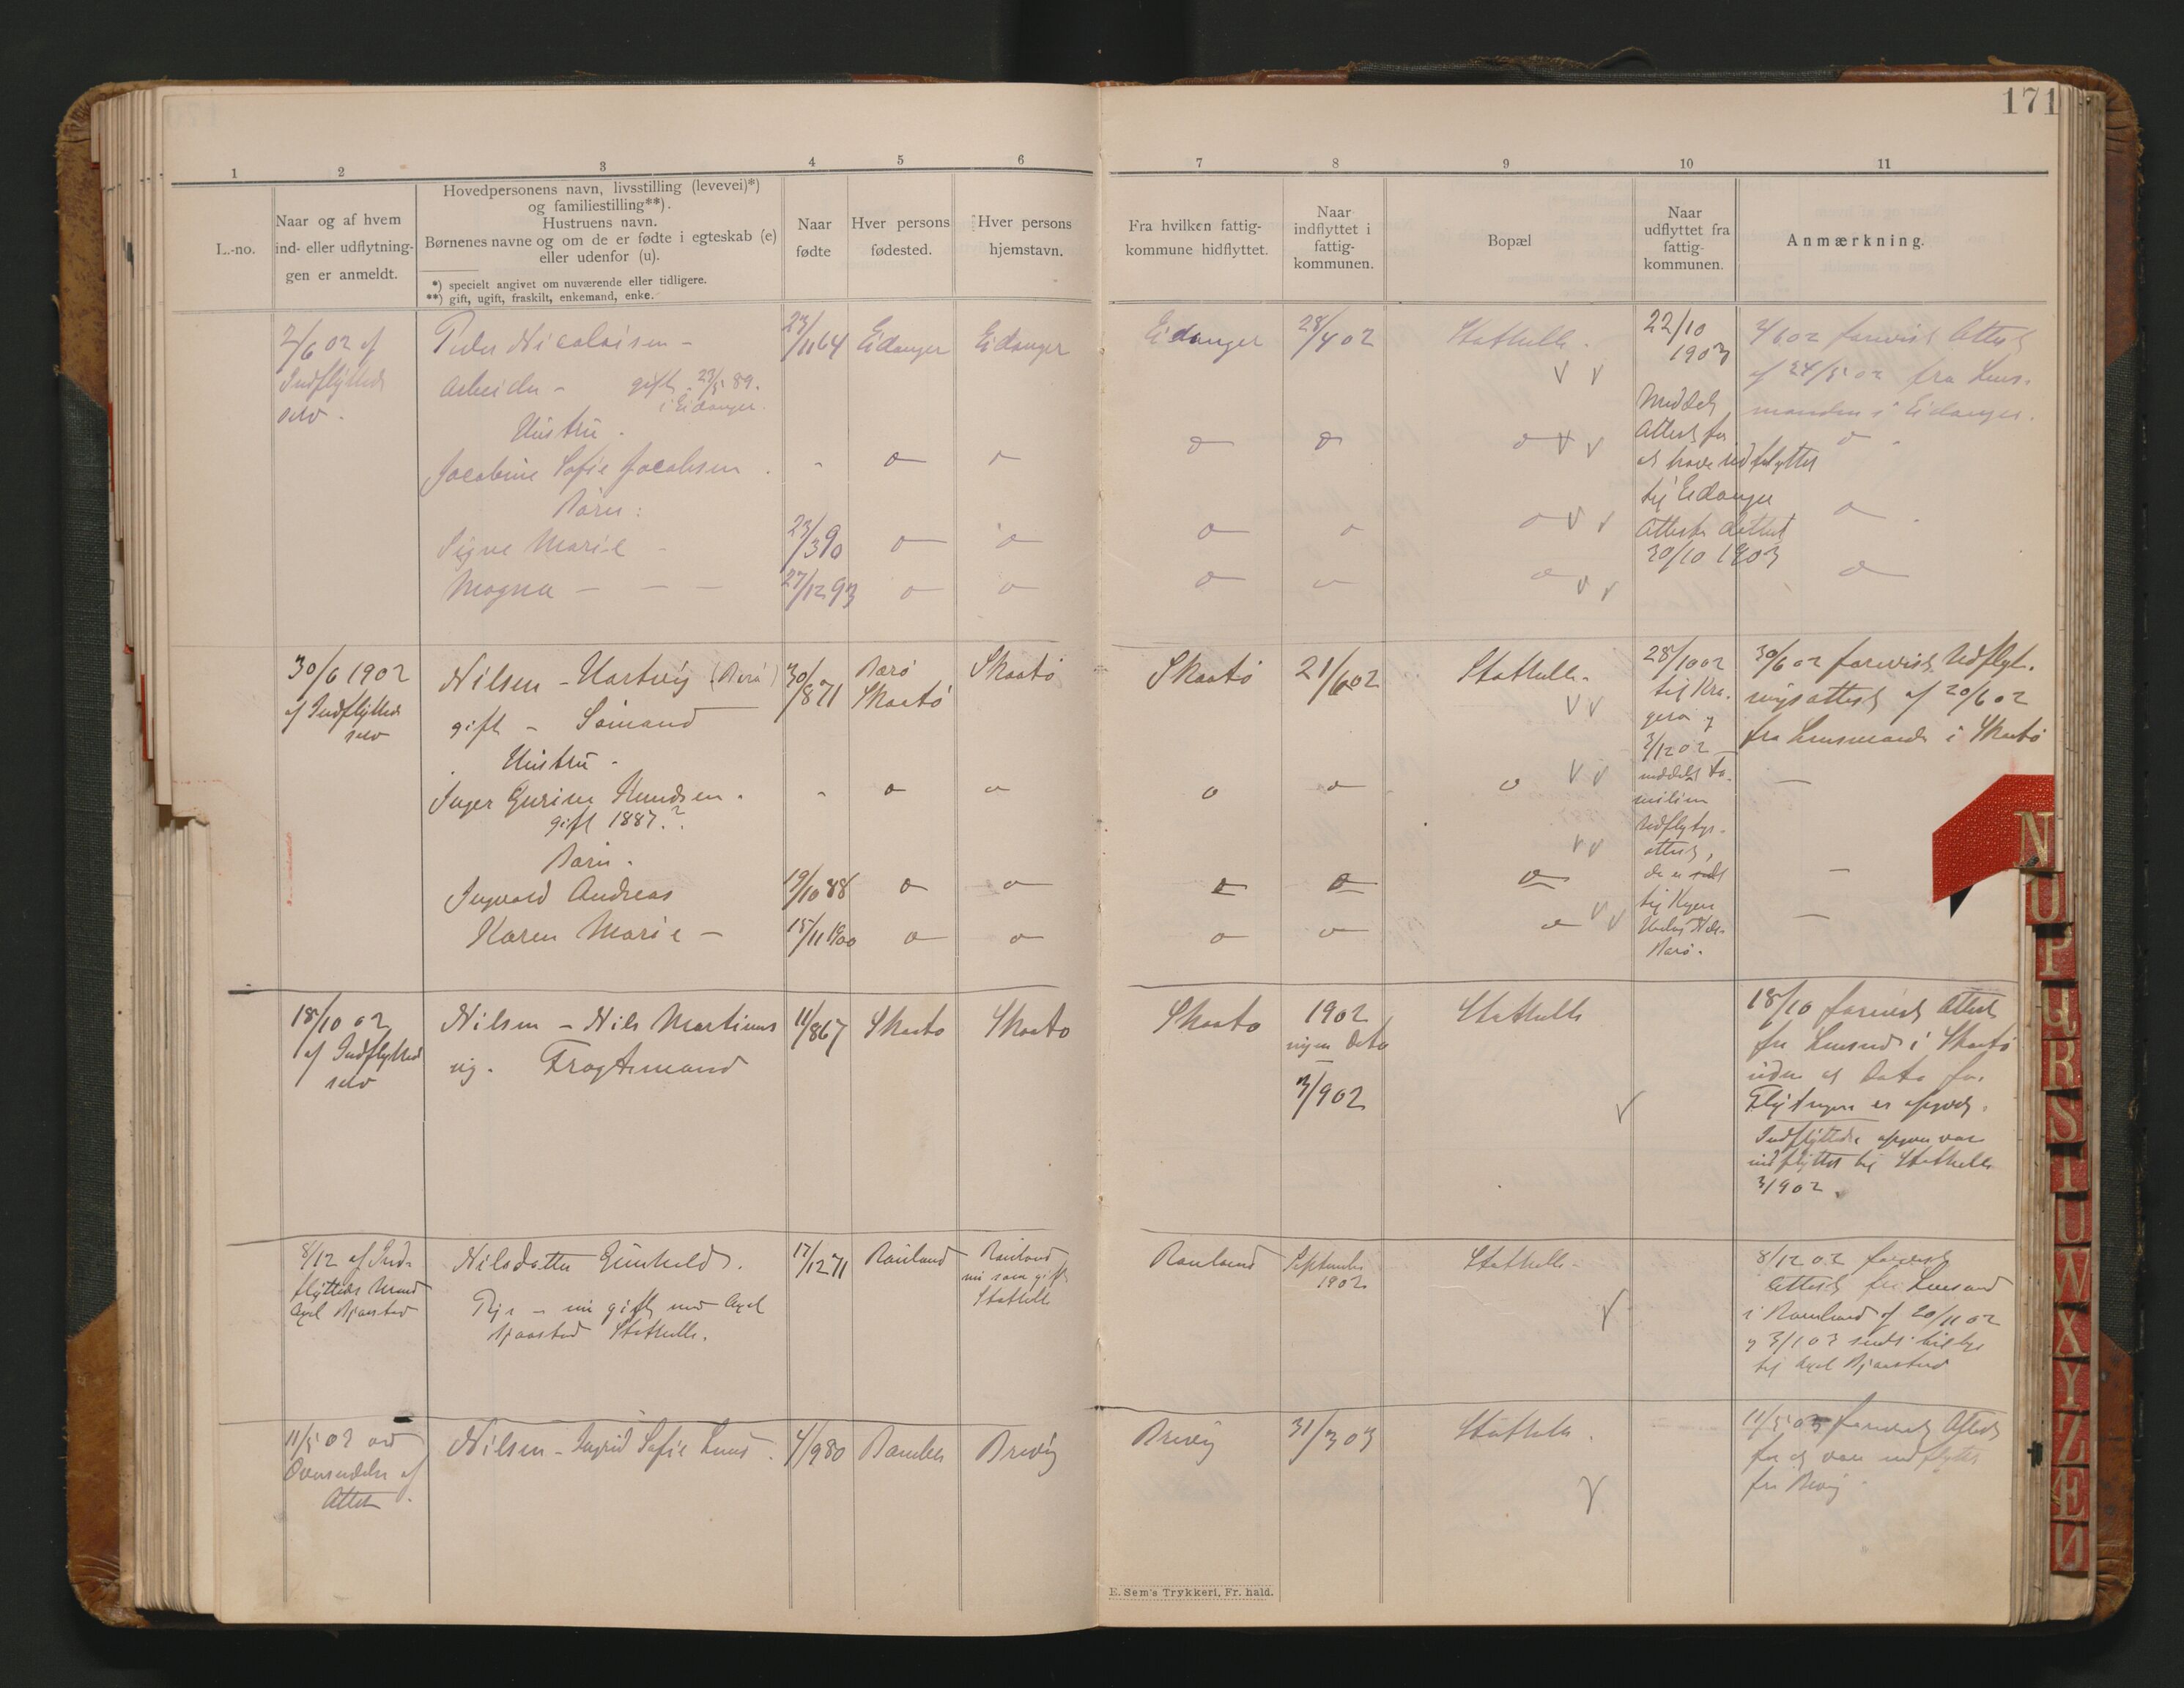 171
1
2
3
4
5
6
7
8
9
10
11
L.-no.
Naar og af hvem
ind- eller udflytning-
gen er anmeldt.
Hovedpersonens navn, livsstilling (levevei)*)
og familiestilling**).
Hustruens navn.
Børnenes navne og om de er fødte i egteskab (e)
eller udenfor (u).
*) specielt angivet om nuværende eller tidligere.
**) gift, ugift, fraskilt, enkemand, enke.
Naar
fødte
Hver persons
fødested.
Hver persons
hjemstavn.
Fra hvilken fattig-
kommune hidflyttet.
Naar
indflyttet i
fattig-
kommunen.
Bopæl
Naar
udflyttet fra
fattig-
kommunen.
Anmærkning.
2/6 02 af
Indflyttede
selv.
Peder Nicolaisen -
Arbeider - gift 23/5 89.
i Eidanger.
Hustru.
Jacobine Sofie Jacobsen.
Børn:
Signe Marie
Magna
23/11 64
23/3 90
27/12 93
Eidanger
Eidanger
Eidanger
28/4 02
Stathelle.
22/10
1903
Meddelt
Attest for
at have udflyttet
til Eidanger
Attesten dateret
30/10 1903
2/6 02 forevist Attest
af 24/5 02 fra Lens-
manden i Eidanger.
30/6 1902
af Indflyttede
selv
Nilsen - Hartvig (Bærø)
gift - Sømand
Hustru -
Inger Gurine Knudsen.
gift 1887.?
Børn.
Ingvald Andreas
Karen Marie -
30/8 71
19/10 88
15/11 1900
Bærø
Skaatø
Skaatø
Skaatø
21/6 02
Stathelle.
28/10 02
til Kra-
gerø og
3/12 02
meddelt Fa-
milien
Udflytgs-
attest,
til
30/6 02 forevist Udflyt-
ningsattest af 20/6 02
fra Lensmand i Skaatø
18/10 02
af Indflyttede
selv
Nilsen - Nils Martinus
ug. Fragtemand
11/8 67
Skaatø
Skaatø
Skaatø
1902
ingen Dato
3/9 02
Stathelle
18/10 forevist Attest
fra Lensmd i Skaatø
uden at Dato for
Flytningen er opgivet.
Indflyttede opgav var
indflyttet til Stathelle
3/9 02.
8/12 af Ind-
flyttedes Mand
Axel Bjaastad
Nilsdatter Gunhild.
Pige - nu gift med Axel
Bjaastad Stathelle.
17/12 71
Rauland
Rauland
nu som gift
Stathelle
Rauland
September
1902
Stathelle
8/12 02 forevist
Attest fra Lensmand
i Rauland af 20/11 02
og 3/1 03 sendt tilbage
til Axel Bjaastad
11/5 03 ved
Oversendelse af
Attest.
Nilsen - Ingrid Sofie
4/9 80
Bamble
Brevig
Brevig
31/3 03
Stathelle.
11/5 03 forevist Attest
for at være udflyttet
fra Brevig
E. Sem's Trykkeri, Fr. hald.
N
U
P
Q
R
S
T
U
W
X
Y
Z
Æ